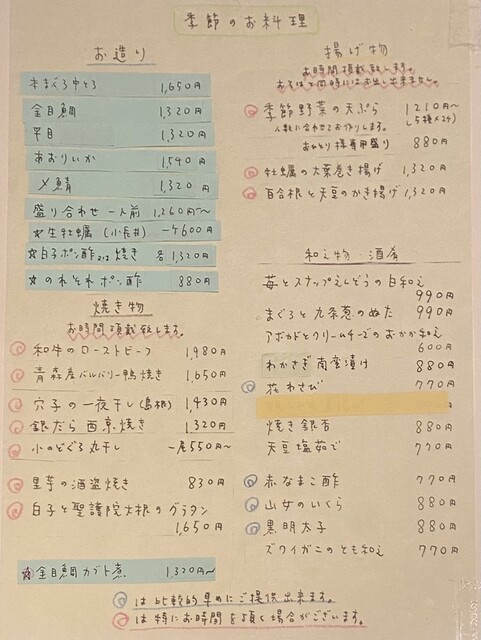 季節のお料理
お造り
本まぐろ中とろ 1,650円
金目鯛 1,320円
平目 1,320円
あおりいか 1,540円
〆鯖 1,320円
盛り合わせ 一人前 1,260円〜
☆生牡蠣(小長井) 一ケ600円
☆白子ポン酢又は焼き 各1,320円
☆のれそれポン酢 880円
焼き物
お時間頂戴致します。
◎和牛のローストビーフ 1,980円
◎青森産バルバリー鴨焼き 1,650円
◎穴子の一夜干し(島根) 1,430円
◎銀だら西京焼き 1,320円
小のどぐろ丸干し 一尾550円〜
◎里芋の酒盗焼き 830円
◎白子と聖護院大根のグラタン
1,650円
☆金目鯛カブト煮 1,320円〜
揚げ物
お時間頂戴致します。
◎季節野菜の天ぷら 1210円〜
人数に合わせてお作りします。
おひとり様専用盛り 880円
◎牡蠣の大葉巻き揚げ 1,320円
◎百合根と天豆のかき揚げ 1,320円
和え物 酒肴
苺とスナップえんどうの白和え
990円
まぐろと九条葱のぬた 990円
アボカドとクリームチーズのおかか和え
600円
わかさぎ南蛮漬け 880円
◎花わさび 770円
焼き銀杏 880円
天豆塩茹で 770円
◎赤なまこ酢 770円
◎山女のいくら 880円
◎黒明太子 880円
ズワイがにのとも和え 770円
◎は比較的早めにご提供出来ます。
◎は特にお時間を頂く場合がございます。